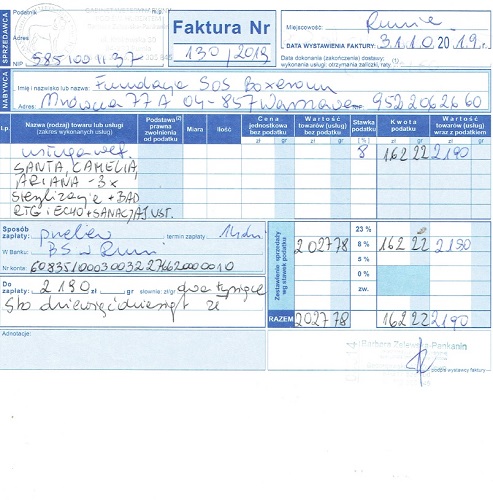 SPRZEDAWCA
Podatnik
Faktura Nr
130/2019
Miejscowość: Rumia
DATA WYSTAWIENIA FAKTURY: 31.10.2019 r.
Data dokonania (zakończenia) dostawy;
wykonania usługi; otrzymania zaliczki, raty (1)
NIP 585 100 11 37
NABYWCA
Imię i nazwisko lub nazwa: Fundacja SOS Bokserom
Adres: Mrówcza 77A 04-857 Warszawa 952 206 26 60
Lp. Nazwa (rodzaj) towaru lub usługi (zakres wykonanej usługi) Podstawa (2) prawna zwolnienia od podatku Miara Ilość Cena jednostkowa bez podatku Wartość towarów (usług) bez podatku Stawka podatku Kwota podatku Wartość towarów (usług) wraz z podatkiem
zł gr zł gr % zł gr zł gr
usługa wet. 8 162 22 2190
SANTA, CAMELIA,
ARIANA - 3x
sterylizacje + BAD
RTG i ECHO + SANACJA J. UST.
Sposób zapłaty: przelew termin zapłaty 14 dni
W Banku: BS w Rumi
Nr konta: 60835100030032276620000010
Do zapłaty: 2190 zł gr słownie: zł/gr dwa tysiące
sto dziewięćdziesiąt zł
Zestawienie sprzedaży wg stawek podatku
23 %
2027 78 8 % 162 22 2190
5 %
0 %
zw.
RAZEM 2027 78 162 22 2190
Adnotacje:
Barbara Zalewska-Pankanin
podpis wystawcy faktury